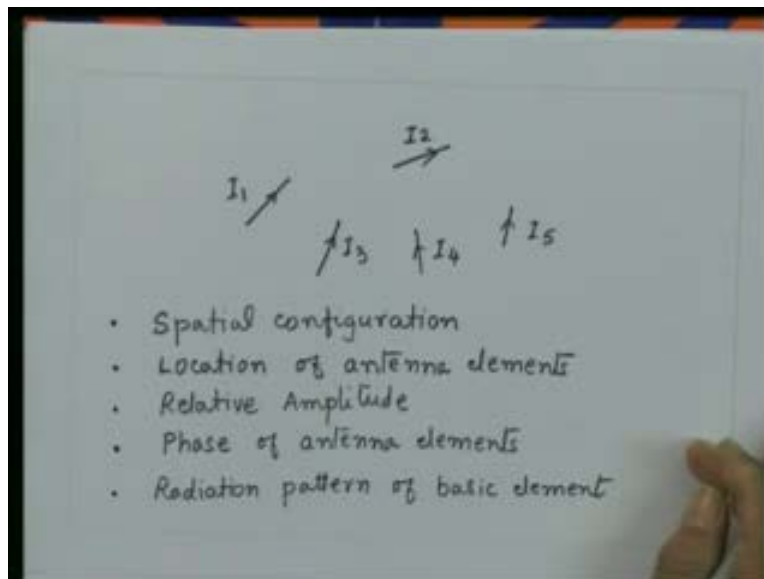 I2
I1
I3 I4 I5
• Spatial configuration
• Location of antenna elements
• Relative Amplitude
• Phase of antenna elements
• Radiation pattern of basic element